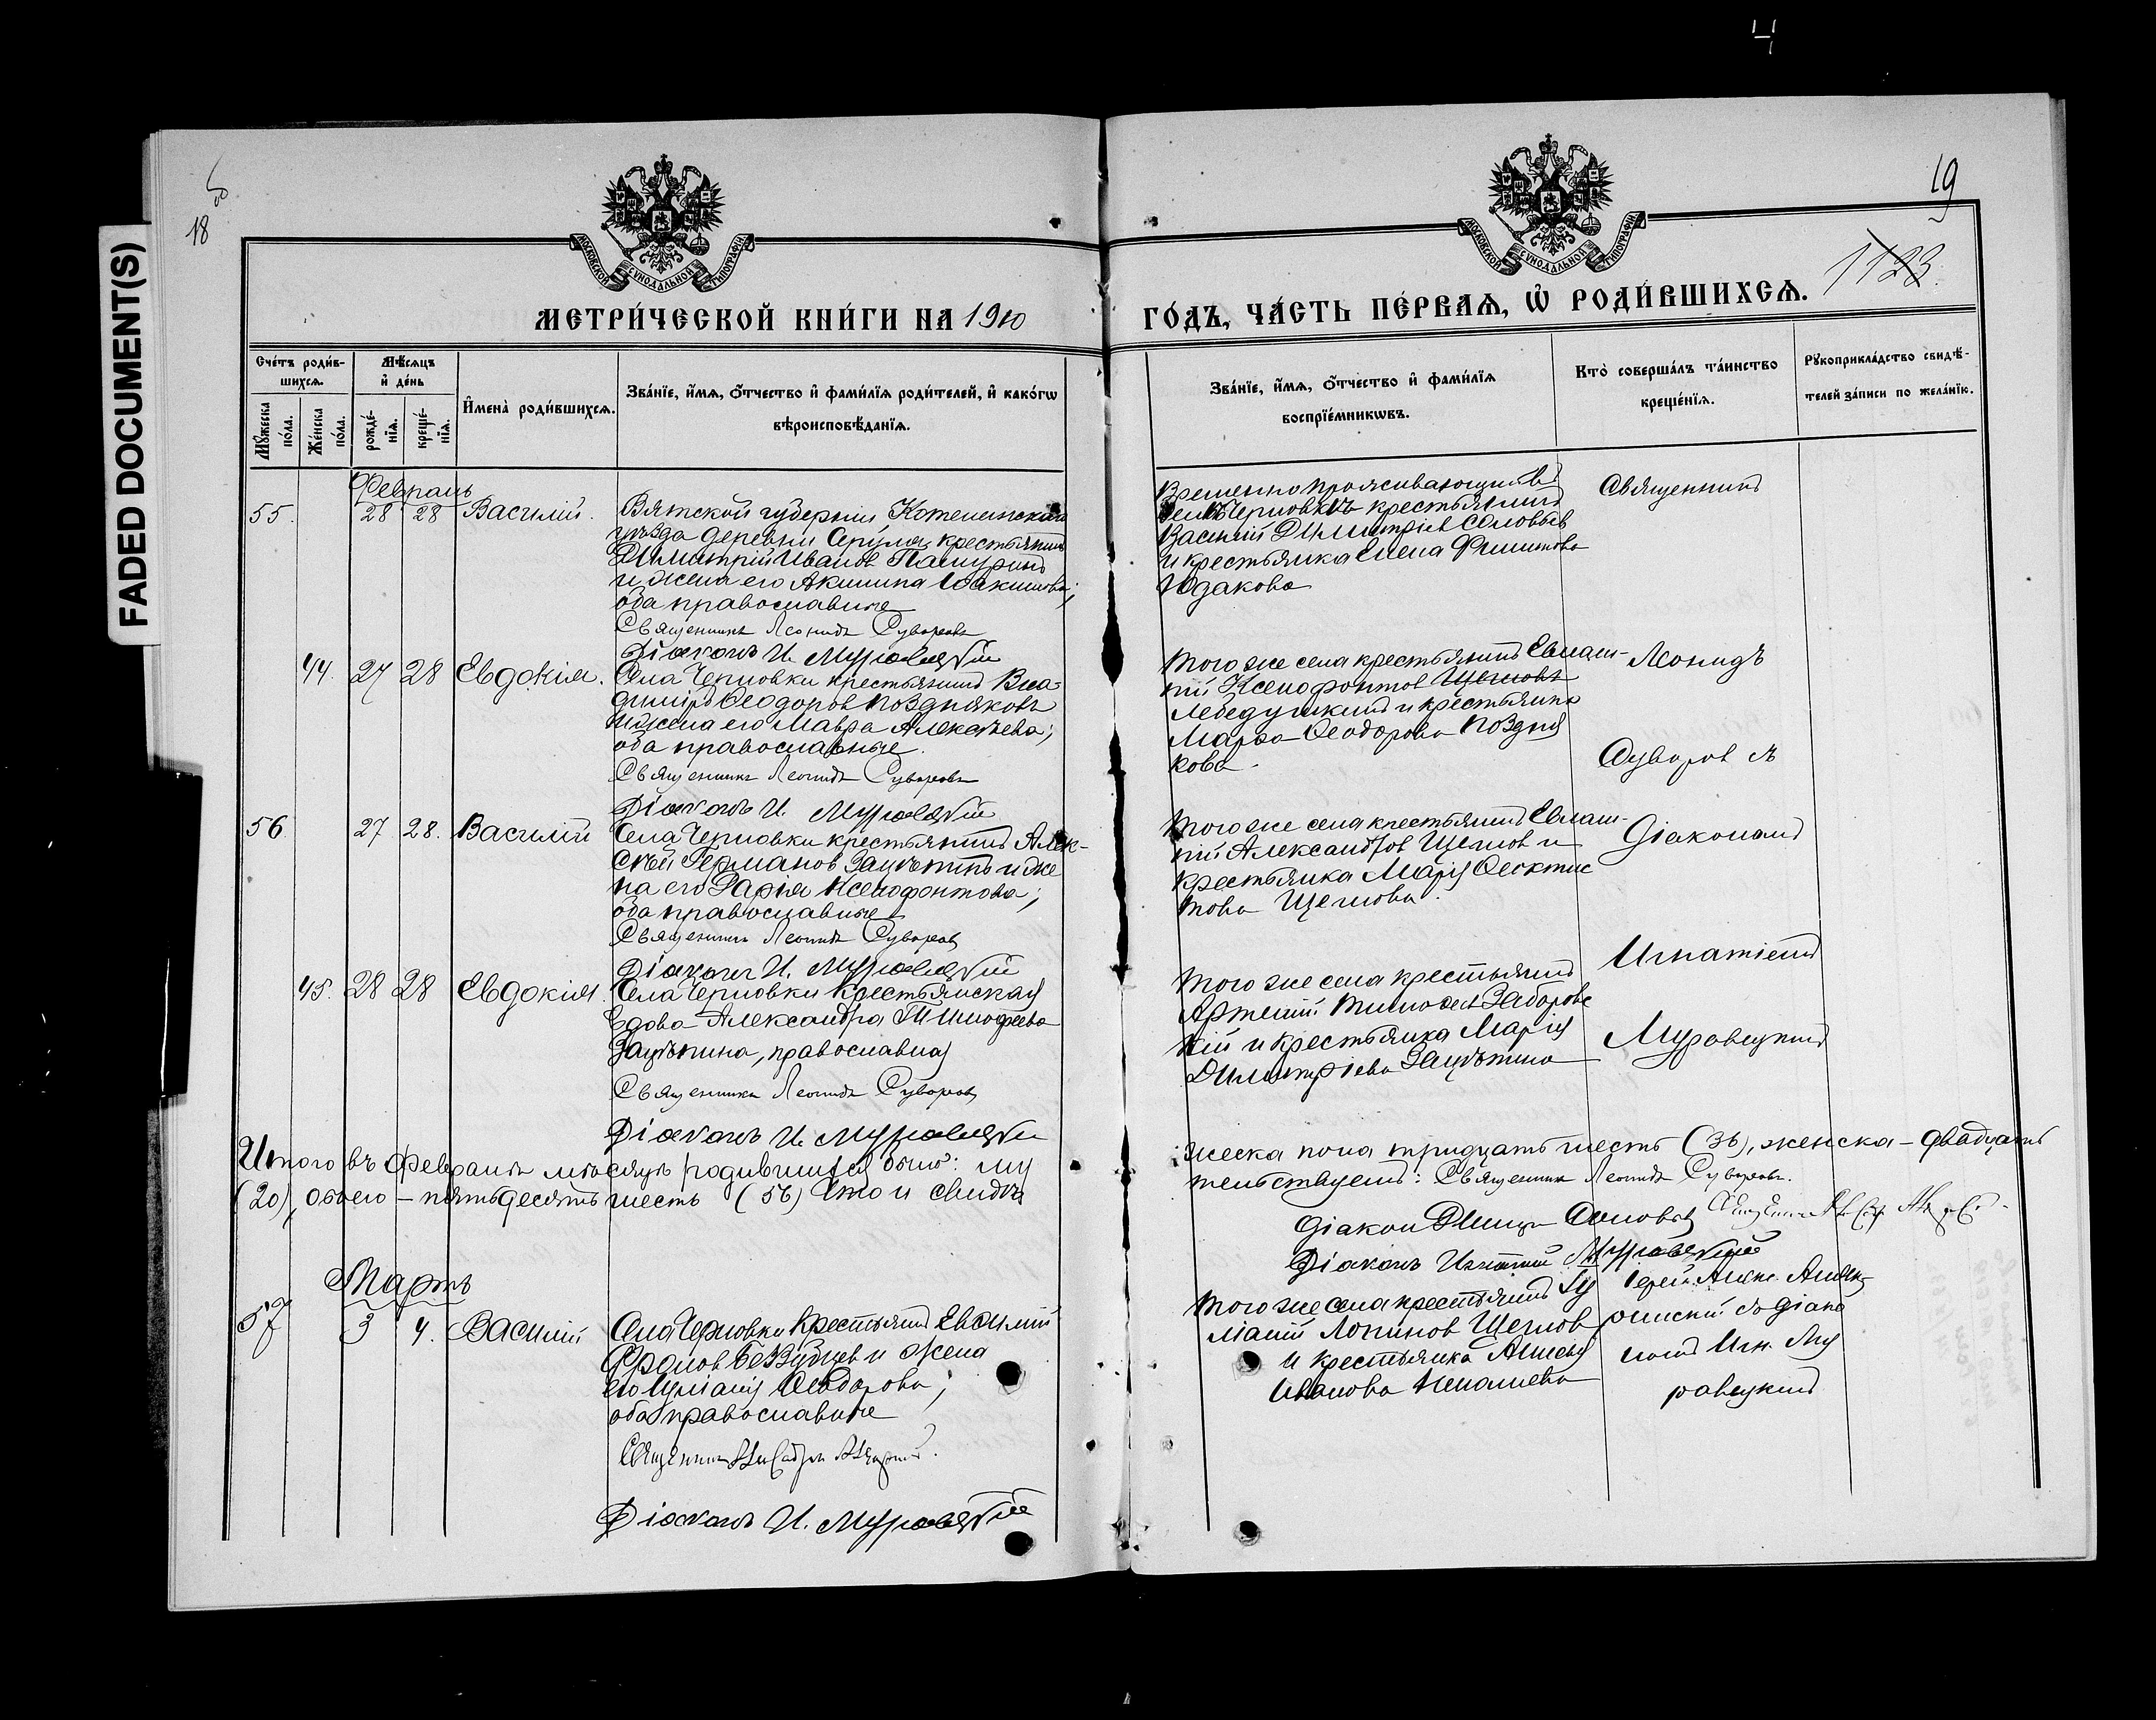 FADED DOCUMENT(S)
4
18
19
1123.
МОСКОВСКОЙ СѴНОДАЛЬНОЙ ТИПОГРАФІИ
МОСКОВСКОЙ СѴНОДАЛЬНОЙ ТИПОГРАФІИ
МЕТРИ́ЧЕСКОЙ КНИ́ГИ НА 1910
ГО́ДЪ, ЧА́СТЬ ПЕ́РВАѦ, Ѡ҆ РОДИ́ВШИХСѦ.
Сче́тъ роди́в-
шихсѧ.
Мѣ́сѧцъ
и҆ де́нь
Мꙋ́жеска
по́ла.
Же́нска
по́ла.
рожде́-
нїѧ.
креще́-
нїѧ.
И҆мена̀ роди́вшихсѧ.
Зва́нїе, и҆́мѧ, ѻ҆́тчество и҆ фами́лїѧ роди́телей, и҆ како́гѡ
вѣроисповѣ́данїѧ.
Зва́нїе, и҆́мѧ, ѻ҆́тчество и҆ фами́лїѧ
воспрїе́мникѡвъ.
Кто̀ соверша́лъ та́инство
креще́нїѧ.
Рꙋкоприкла́дство свидѣ́-
телей за́писи по жела́нїю.
Февраль
55. 28 28 Василій.
Вятской губерніи, Котельнскаго
уѣзда деревни крестьянинъ
Димитрій Ивановъ
и жена его Акилина Іоакимова;
оба православные
Священникъ Леонидъ Суворовъ
Діаконъ И. Муравецкій
Временно проживающій въ
селѣ Черновкѣ крестьянинъ
Василій Димитріев Соловьев
и крестьянка Елена Филиппова
Юдакова
Священникъ
44. 27 28 Евдокія.
Села Черновки крестьянинъ Вла-
димiръ Феодоров Поздняковъ
и жена его Мавра Алексѣева;
оба православные.
Священникъ Леонидъ Суворовъ
Діаконъ И. Муравецкій
Того же села крестьянинъ Евлам-
пій Ксенофонтов Щегловъ
и крестьянка
Марѳа Феодорова Поздня
кова.
Леонидъ
Суворовъ
56 27 28. Василій
Села Черновки крестьянинъ Алек-
сѣй Германов Зацѣпинъ и же
на его Ксенофонтова;
оба православные
Священникъ Леонидъ Суворовъ
Діаконъ И. Муравецкій
Того же села крестьянинъ Евлам-
пій Александров Щеглов и
крестьянка Марія Феоктис
това Щеглова.
діакономъ
Игнатіемъ
45. 28 28 Евдокія.
Села Черновки Крестьянская
вдова Александра Тимофеева
Зацѣпина, православная
Священникъ Леонидъ Суворовъ
Діаконъ И. Муравецкій
Того же села крестьянинъ
Артемій Тимофеев Заборовс
кій и крестьянка Марія
Димитріева Зацѣпина
Муравецкимъ
Итого въ Февралѣ мѣсяцѣ родившихся было: му
жеска пола тридцать шесть (36), женска – двадцать
(20), обоего – пятьдесятъ шесть (56) Что и свидѣ
тельствуемъ: Священникъ Леонидъ Суворовъ.
Діакон Соловьев
Діаконъ Игнатій Муравецкій
Мартъ
57 3 4. Василій
Села Черновки Крестьянинъ Евфимій
Фролов Беззубцев и жена
его Іуліанія Феодорова;
оба православные
Діаконъ И. Муравецкій
Того же села крестьянинъ
Щеглов
и крестьянка
Иванова
Іерей Алекс.
съ діако
номъ Игн. Му
равецкимъ